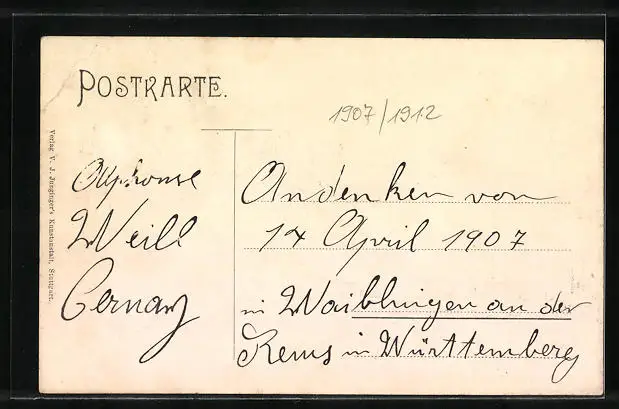 POSTKARTE.
1907/1912
Verlag V. J. Junginger's Kunstanstalt, Stuttgart.
Alphonse
Weill
Cernay
Andenken von
14 April 1907
in Waiblingen an der
Rems in Württemberg